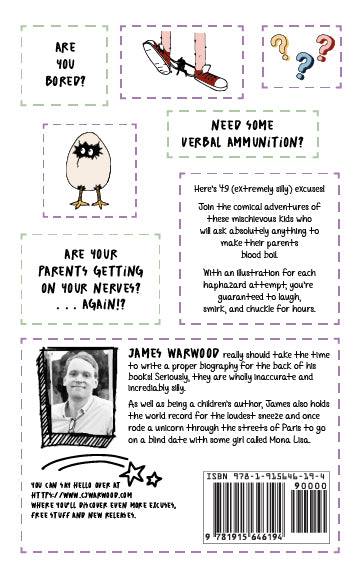 ARE
YOU
BORED?
? ? ?
NEED SOME
VERBAL AMMUNITION?
Here's 49 (extremely silly) excuses!
Join the comical adventures of
these mischievous kids who
will ask absolutely anything to
make their parents
blood boil.
With an illustration for each
haphazard attempt; you're
guaranteed to laugh,
smirk, and chuckle for hours.
ARE YOUR
PARENTS GETTING
ON YOUR NERVES?
. . . AGAIN!?
JAMES WARWOOD really should take the time
to write a proper biography for the back of his
books! Seriously, they are wholly inaccurate and
incredibly silly.
As well as being a children's author, James also holds
the world record for the loudest sneeze and once
rode a unicorn through the streets of Paris to go
on a blind date with some girl called Mona Lisa.
YOU CAN SAY HELLO OVER AT
HTTPS://WWW.CJWARWOOD.COM
WHERE YOU'LL DISCOVER EVEN MORE EXCUSES,
FREE STUFF AND NEW RELEASES.
ISBN 978-1-915646-19-4
90000
9 781915 646194